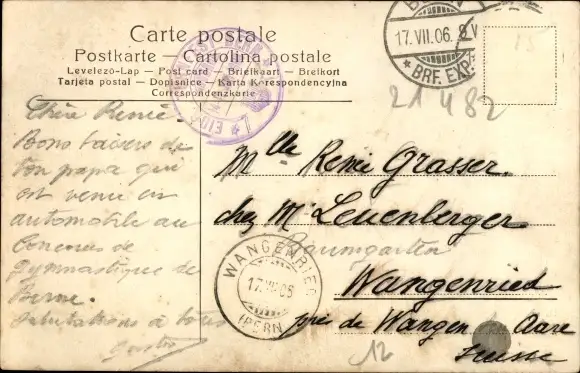 Carte postale
Postkarte — Cartolina postale
Levelező-Lap — Post card — Briefkaart — Brefkort
Tarjeta postal — Dopisnice — Karta Korespondencyjna
Correspondenzkarte
17.VII.06. 8V
★ BRF. EXP.
15
21482
Chère Renée
Bons baisers de
ton papa qui
est venu en
automobile au
Concours de
gymnastique de
Berne.
Salutations à tous
Mlle Renée Grasser.
chez Mr Leuenberger
Baumgarten
Wangenried
près de Wangen Aare
Suisse
WANGENRIED
17.VII.06
(BERN)
12